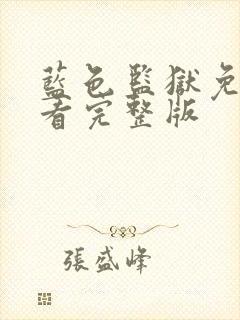 藍色監獄免
看完整版
張盛峰